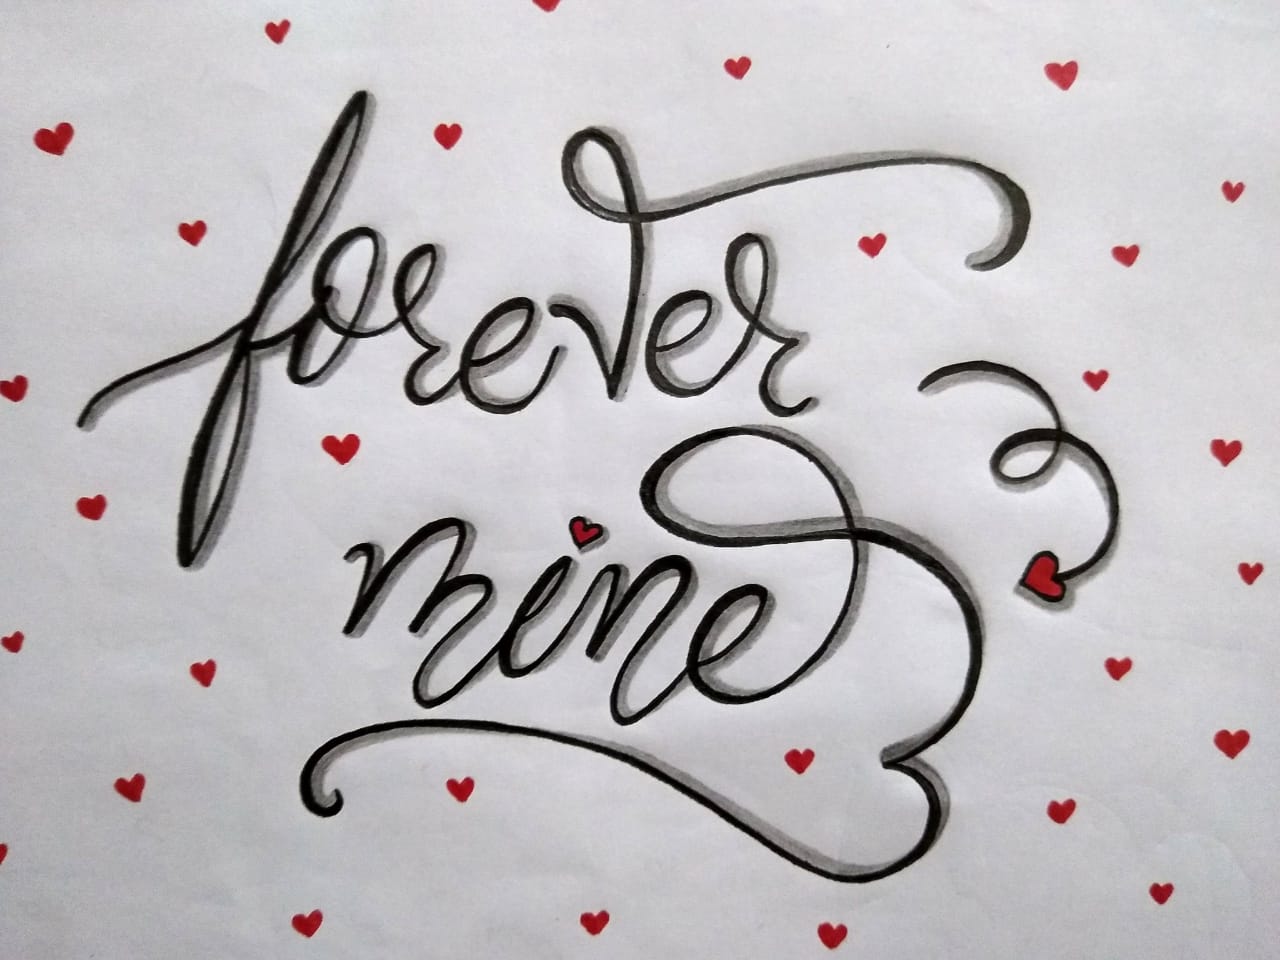 forever
mine